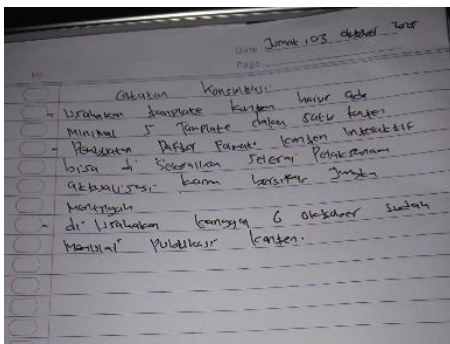 Date Jumat, 03 oktober 2025
No
Page
Catatan Konsultasi
- Usahakan template konten harus ada
minimal 5 Template dalam satu konten
- Pembuatan Daftar Format konten Interaktif
bisa di selesaikan Pelaksanaan
aktualisasi karna bersifat Jangka
Menengah
- di Usahakan tanggal 6 oktober sudah
Memulai Publikasi konten.